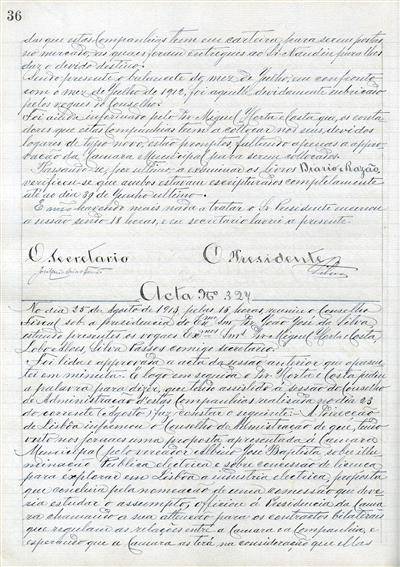 36
das que estas Companhias teem em carteira para serem postas
no mercado, as quaes foram entregues ao Sr. Naudin para lhes
dar o devido destino.
Sendo presente o balancete do mez de Julho, em confronto
com o mez de Julho de 1912, foi aquelle devidamente rubricado
pelos vogaes do Conselho.
Foi ainda informado pelo Sr. Miguel Horta e Costa que, os conta
dores que estas Companhias teem a collocar nos seus devidos
logares de typo novo, estão promptos, faltando apenas a appro
bação da Camara Municipal para serem collocados.
Passando-se, por ultimo, a examinar os Livros Diario e Razão,
verificou-se que ambos estavam escripturados completamente
até ao dia 29 de Junho ultimo.
E não havendo mais nada a tratar o Sr. Presidente encerrou
a sessão sendo 18 horas, e eu secretario lavrei a presente.
O Secretario O Presidente
Acta Nº 324
No dia 25 de Agosto de 1913, pelas 15 horas, reuniu o Conselho
Fiscal sob a presidencia do Exmo Snr. Dr. João José da Silva,
estando presentes os vogaes Exmos Snrs. Dr. Miguel Horta e Costa
Lobo e Silva Bastos comigo secretario.
Foi lida e approvada a acta da sessão anterior que apresen
tei em minuta. E logo em seguida o Sr. Horta e Costa pediu
a palavra para dizer, que tendo assistido á sessão do Conselho
de Administração d'estas Companhias realisada no dia 23
do corrente (Agosto) faz constar o seguinte: - A Direcção
de Lisbôa informou o Conselho de Administração de que, tendo
visto nos jornaes uma proposta apresentada á Camara
Municipal pelo vereador Albino José Baptista, sobre illu
minação Publica electrica e sobre concessão de licença
para explorar em Lisbôa a industria electrica, proposta
que concluia pela nomeação de uma comissão que deve
ria estudar o assumpto, officiou á Presidencia da Cama
ra chamando a sua attenção para os contractos bilateraes
que regulam as relações entre a Camara e a Companhia, e
esperando que a Camara os terá na consideração que elles